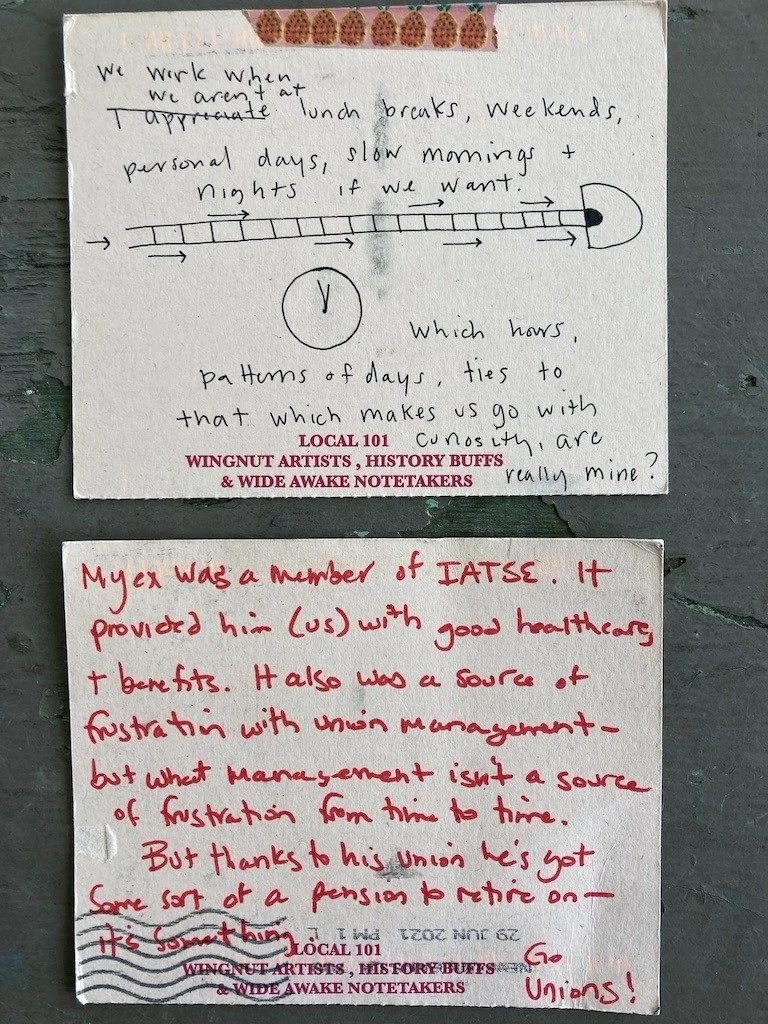 we work when
we aren't at
I appreciate lunch breaks, weekends,
personal days, slow mornings +
nights if we want.
which hours,
patterns of days, ties to
that which makes us go with
curiosity, are
really mine?
LOCAL 101
WINGNUT ARTISTS , HISTORY BUFFS
& WIDE AWAKE NOTETAKERS
My ex was a member of IATSE. It
provided him (us) with good healthcare,
+ benefits. It also was a source of
frustration with union management-
but what management isn't a source
of frustration from time to time.
But thanks to his union he's got
some sort of a pension to retire on-
it's something.
29 JUN 2021 PM 1 L
Go
Unions!
LOCAL 101
WINGNUT ARTISTS , HISTORY BUFFS
& WIDE AWAKE NOTETAKERS